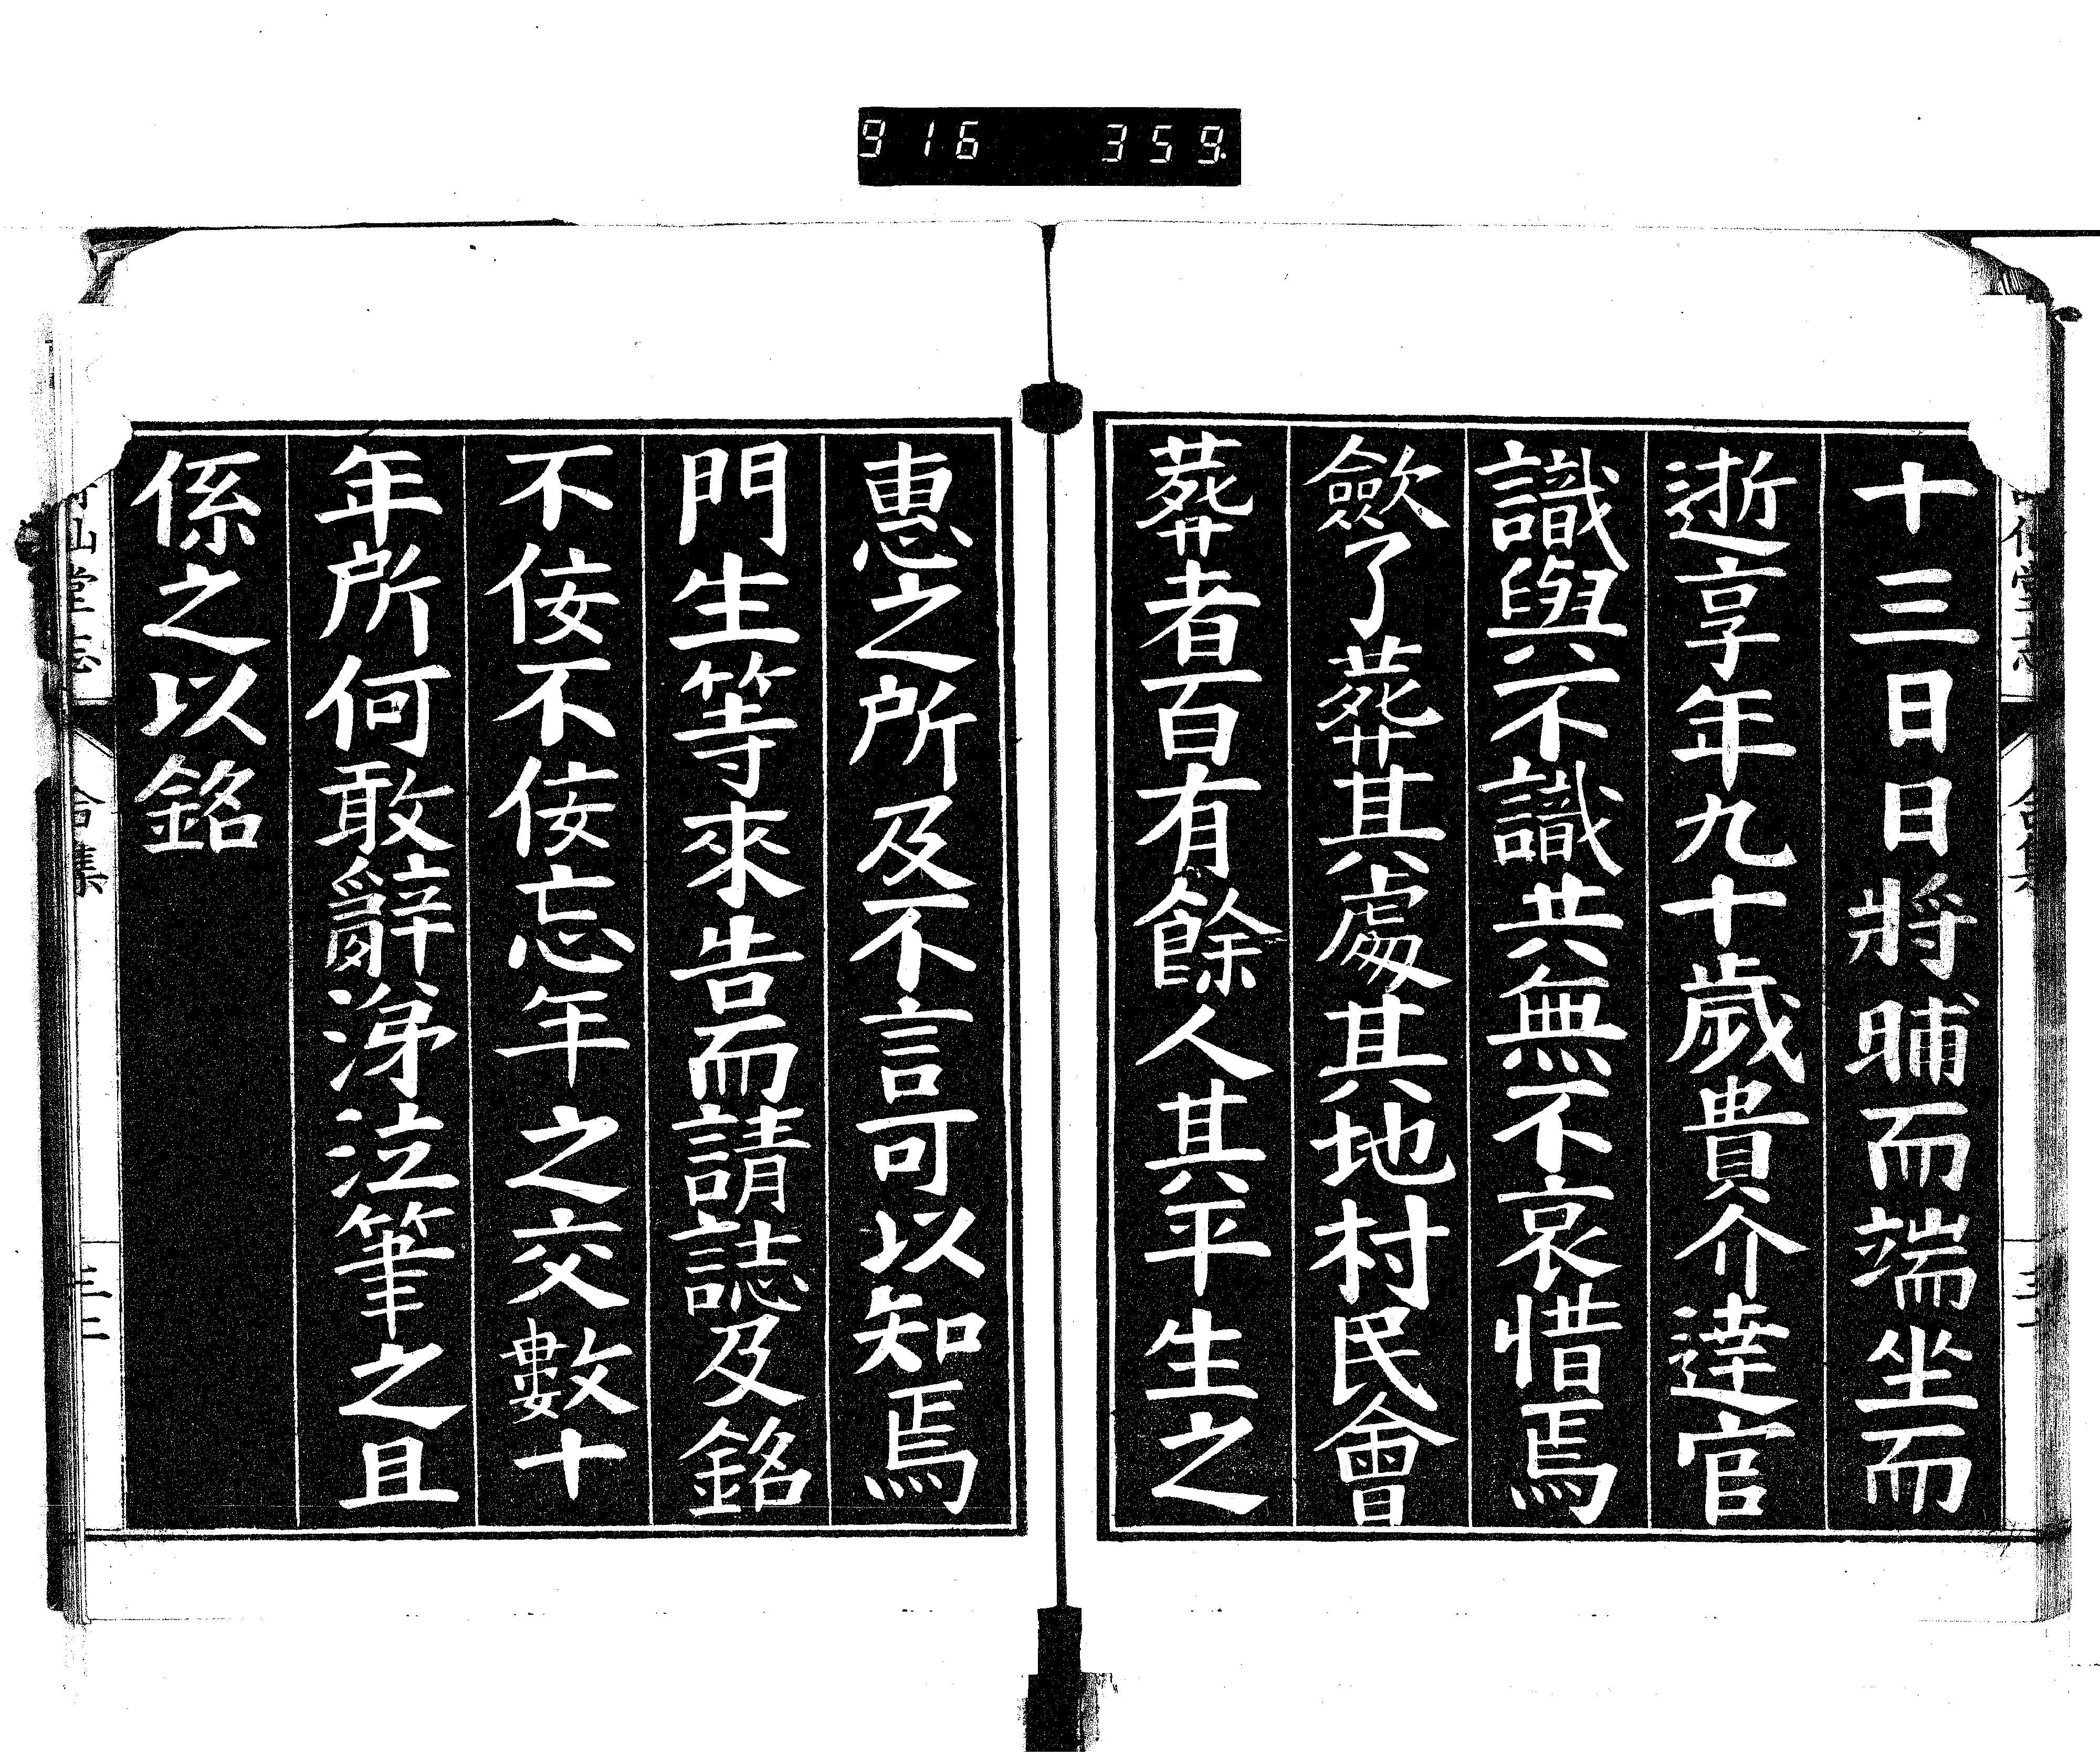 916 359
十三日日將晡而端坐而
逝享年九十歲貴介達官
識與不識共無不哀惜焉
歛了葬其處其地村民會
葬者百有餘人其平生之
惠之所及不言可以知焉
門生等來告而請誌及銘
不佞不佞忘年之交數十
年所何敢辭涕泣筆之且
係之以銘